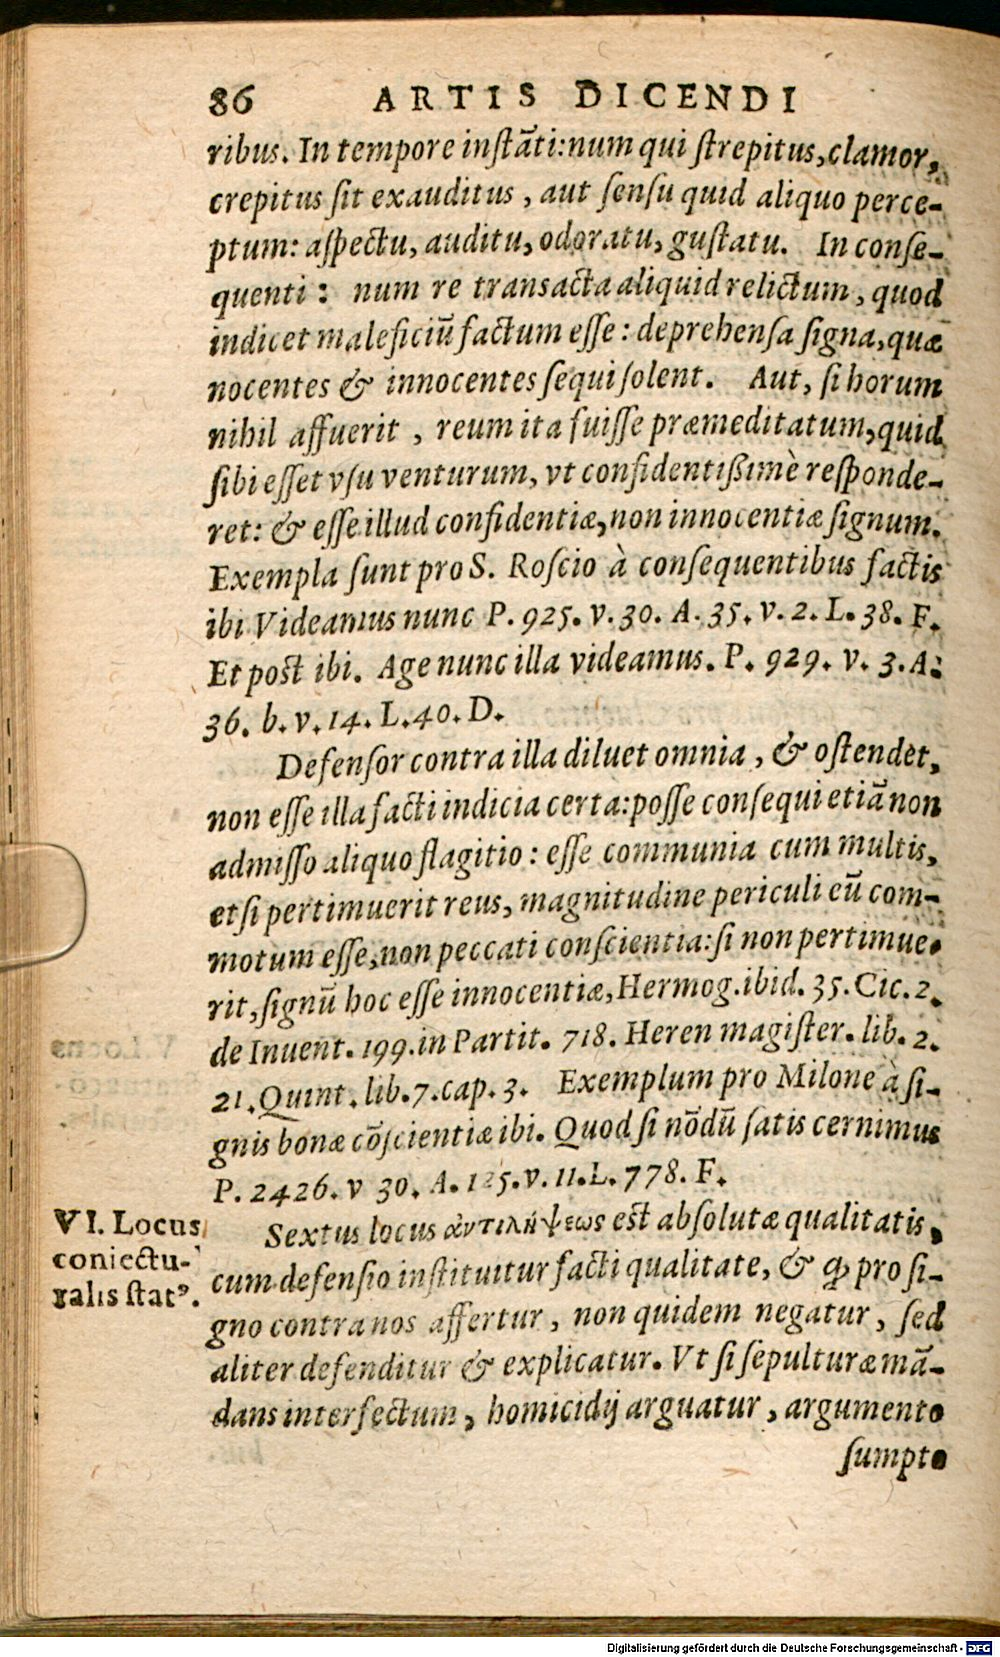 86 ARTIS DICENDI
ribus. In tempore inſtãti: num qui ſtrepitus, clamor,
crepitus ſit exauditus, aut ſenſu quid aliquo perce-
ptum: aſpectu, auditu, odoratu, guſtatu. In conſe-
quenti: num re transacta aliquid relictum, quod
indicet maleficiũ factum eſſe: deprehenſa ſigna, quæ
nocentes & innocentes ſequi ſolent. Aut, ſi horum
nihil affuerit, reum ita fuiſſe præmeditatum, quid
ſibi eſſet vſu venturum, vt confidentißimè reſponde-
ret: & eſſe illud confidentiæ, non innocentiæ ſignum.
Exempla ſunt pro S. Roſcio à conſequentibus factis
ibi Videamus nunc P. 925. v. 30. A. 35. v. 2. L. 38. F.
Et poſt ibi. Age nunc illa videamus. P. 929. v. 3. A.
36. b. v. 14. L. 40. D.
Defenſor contra illa diluet omnia, & oſtendet,
non eſſe illa facti indicia certa: poſſe conſequi etiã non
admiſſo aliquo flagitio: eſſe communia cum multis,
etſi pertimuerit reus, magnitudine periculi eũ com-
motum eſſe, non peccati conſcientia: ſi non pertimue-
rit, ſignũ hoc eſſe innocentiæ, Hermog. ibid. 35. Cic. 2.
de Inuent. 199. in Partit. 718. Heren magiſter. lib. 2.
21. Quint. lib. 7. cap. 3. Exemplum pro Milone à ſi-
gnis bonæ cõſcientiæ ibi. Quod ſi nõdũ ſatis cernimus
P. 2426. v 30. A. 125. v. 11. L. 778. F.
VI. Locus
coniectu-
ralis ſtatꝰ.
Sextus locus ἀντιλήψεως eſt abſolutæ qualitatis,
cum defenſio inſtituitur facti qualitate, & ꝙ pro ſi-
gno contra nos affertur, non quidem negatur, ſed
aliter defenditur & explicatur. Vt ſi ſepulturæ mã-
dans interfectum, homicidij arguatur, argumento
ſumpto
Digitalisierung gefördert durch die Deutsche Forschungsgemeinschaft - DFG